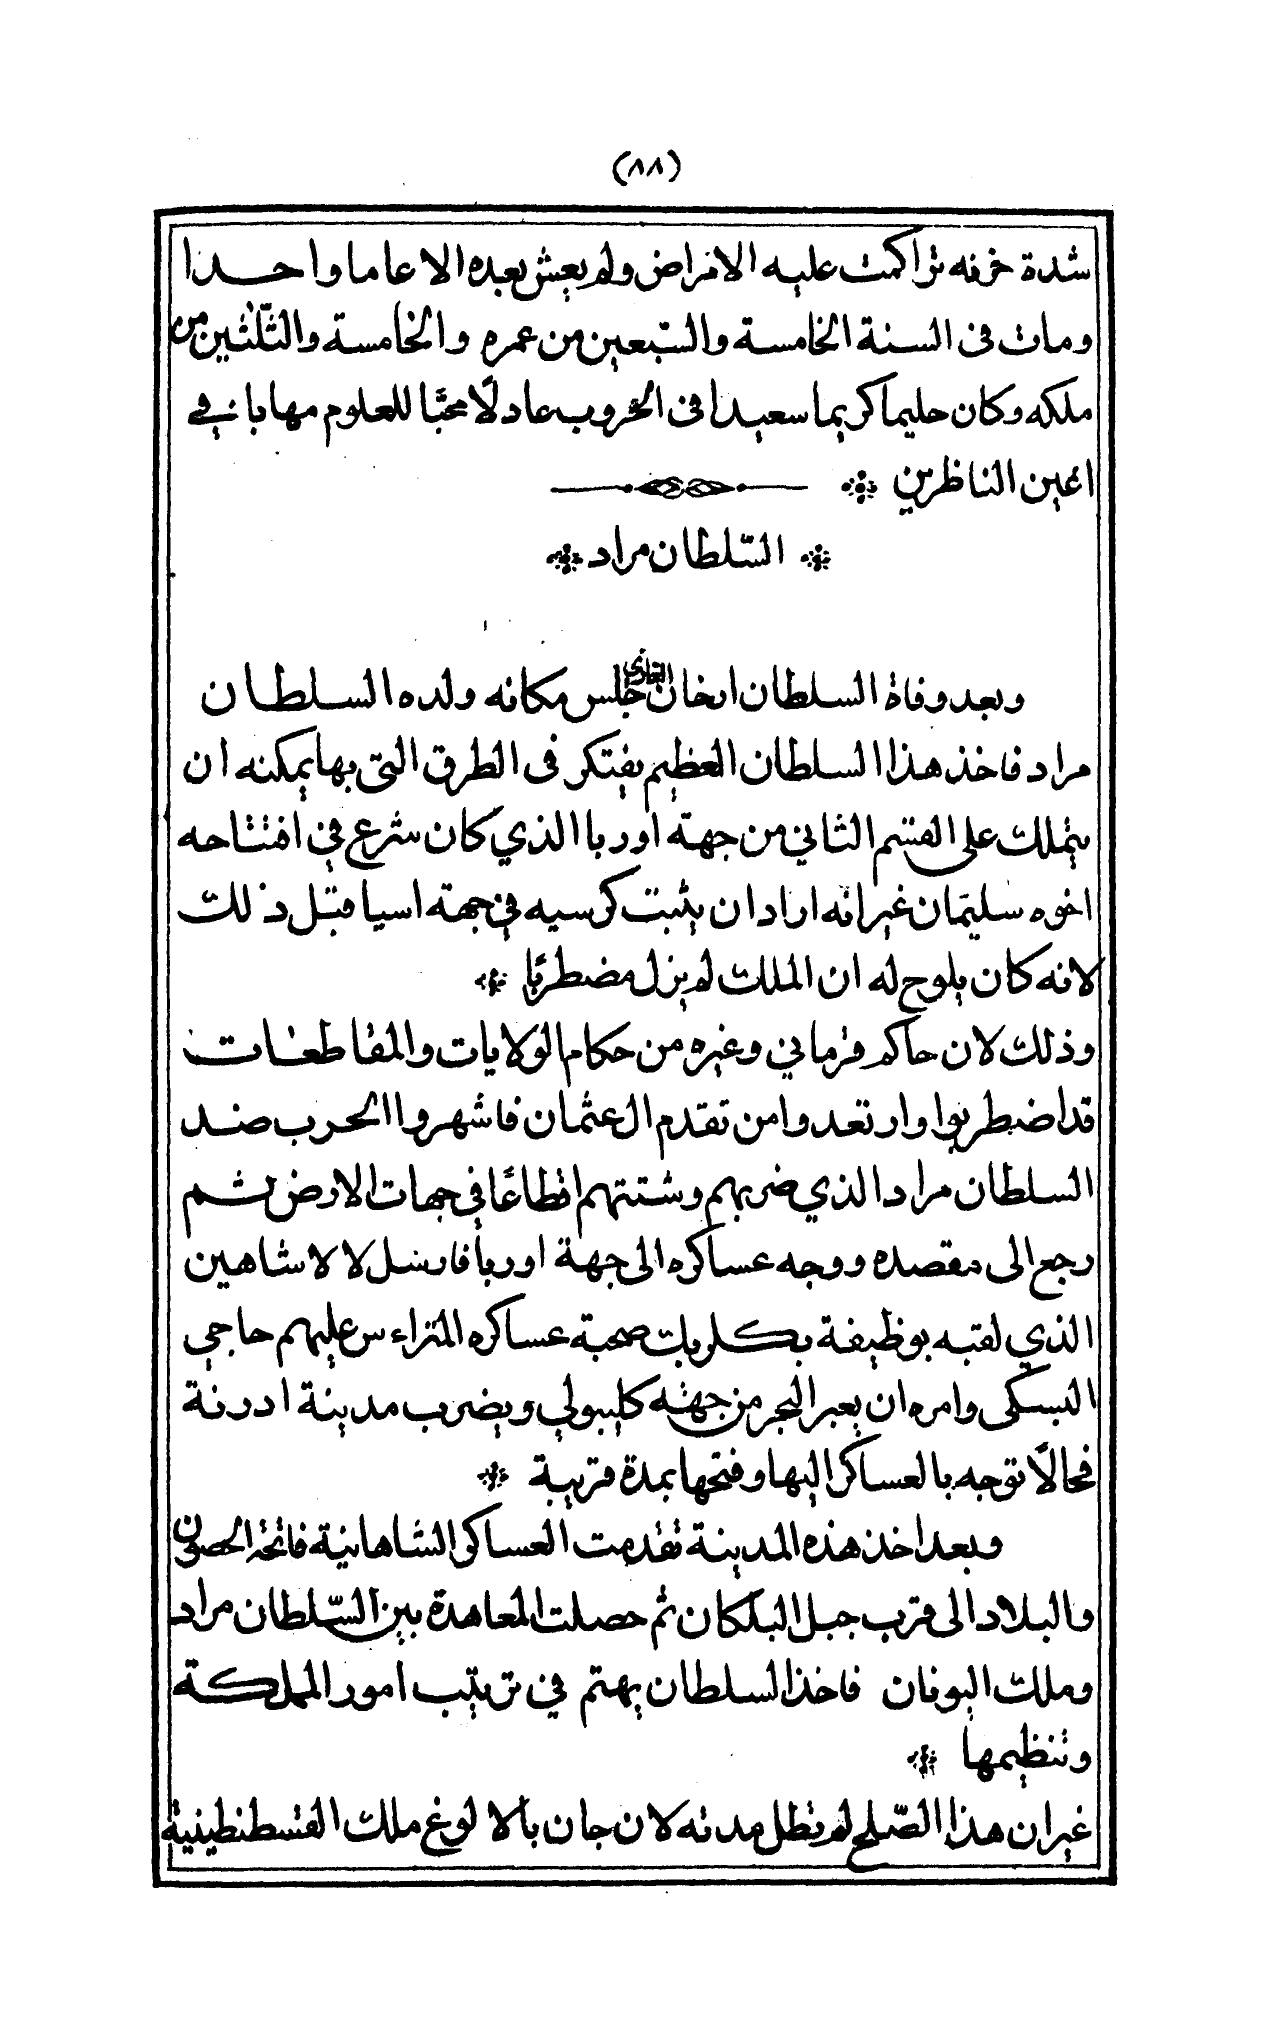 (٨٨)
شدة حزنه تراكمت عليه الامراض ولم يعش بعده الا عاما واحدا
ومات فى السنة الخامسة والسّبعين من عمره والخامسة والثّلثين من
ملكه وكان حليما كريما سعيدا فى الحروب عادلًا محبًّا للعلوم مهابا في
اعين الناظرين
السّلطان مراد
وبعد وفاة السلطان ارخان الغازى جلس مكانه ولده السلطان
مراد فاخذ هذا السلطان العظيم يفتكر فى الطرق التى بها يمكنه ان
يتملك على القسم الثاني من جهة اوربا الذي كان شرع في افتتاحه
اخوه سليمان غير انه اراد ان يثبت كرسيه في جهة اسيا قبل ذلك
لانه كان يلوح له ان الملك لم يزل مضطربًا
وذلك لان حاكم قرماني وغيره من حكام الولايات والمقاطعات
قد اضطربوا وارتعدوا من تقدم ال عثمان فاشهروا الحرب ضد
السلطان مراد الذي ضربهم وشتتهم اقطاعًا في جهات الارض ثم
رجع الى مقصده ووجه عساكره الى جهة اوربا فارسل لالا شاهين
الذي لقبه بوظيفة بكلربك صحبة عساكره المتراءس عليهم حاجي
البسكى وامره ان يعبر البحر من جهة كليبولي ويضرب مدينة ادرنة
فحالًا توجه بالعساكر اليها وفتحها بمدة قريبة
وبعد اخذ هذه المدينة تقدمت العساكر الشاهانية فاتحة الحصون
والبلاد الى قرب جبل البلكان ثم حصلت المعاهدة بين السّلطان مراد
وملك اليونان فاخذ السلطان يهتم في ترتيب امور المملكة
وتنظيمها
غير ان هذا الصّلح لم تطل مدته لان جان بالالوغ ملك القسطنطينية